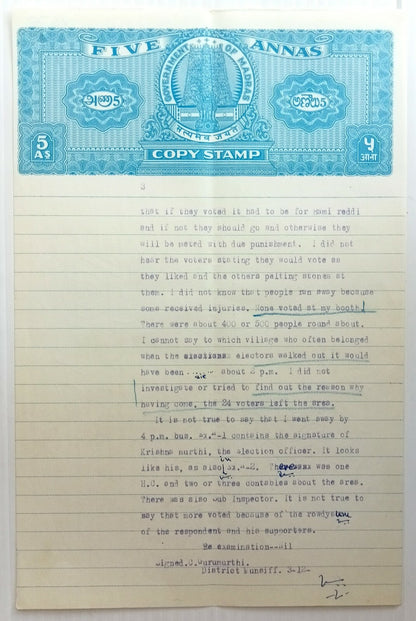 FIVE ANNAS
GOVERNMENT OF MADRAS
सत्यमेव जयते
5
AS
COPY STAMP
५
आना
3
that if they voted it had to be for Rami reddi
and if not they should go and otherwise they
will be meted with due punishment. I did not
hear the voters stating they would vote as
they liked and the others pelting stones at
them. I did not know that people ran away because
some received injuries. None voted at my booth!
There were about 400 or 500 people round about.
I cannot say to which village who often belonged
when the electors walked out it would
have been about 2 p.m. I did not
investigate or tried to find out the reason why
having come, the 24 voters left the area.
It is not true to say that I went away by
4 p.m. bus. ex.A-1 contains the signature of
Krishna murthi, the election officer. It looks
like his, as also in ex.A-2. There was one
H.C. and two or three contables about the area.
There was also Sub Inspector. It is not true to
say that more voted because of the rowdysim
of the respondent and his supporters.
Re examination--Nil
Signed.C.Gurumurthi.
District Munsiff. 3-12-